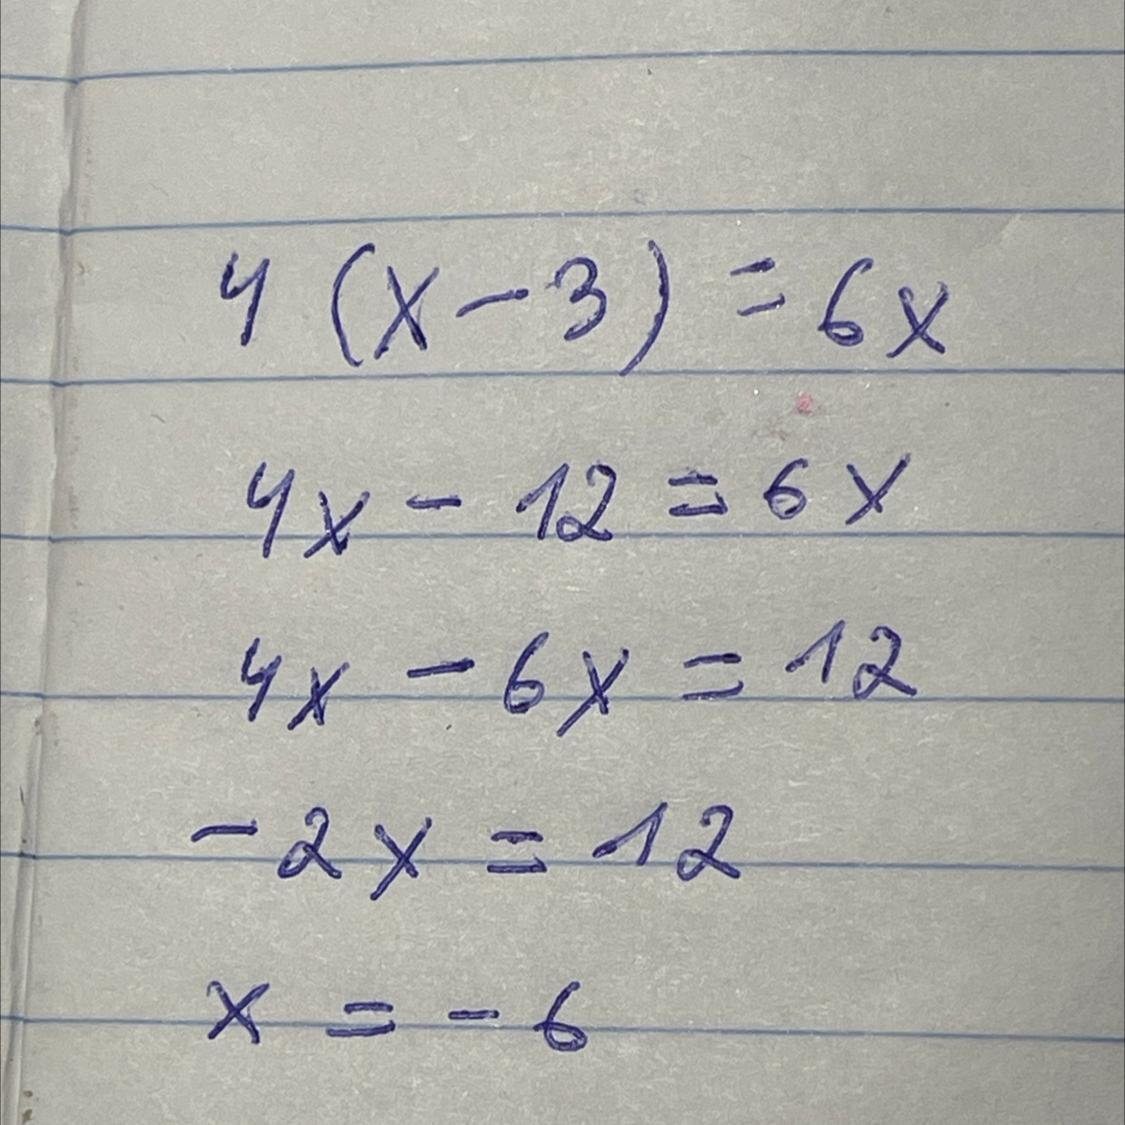 4 (x - 3) = 6x
4x - 12 = 6x
4x - 6x = 12
- 2x = 12
x = - 6